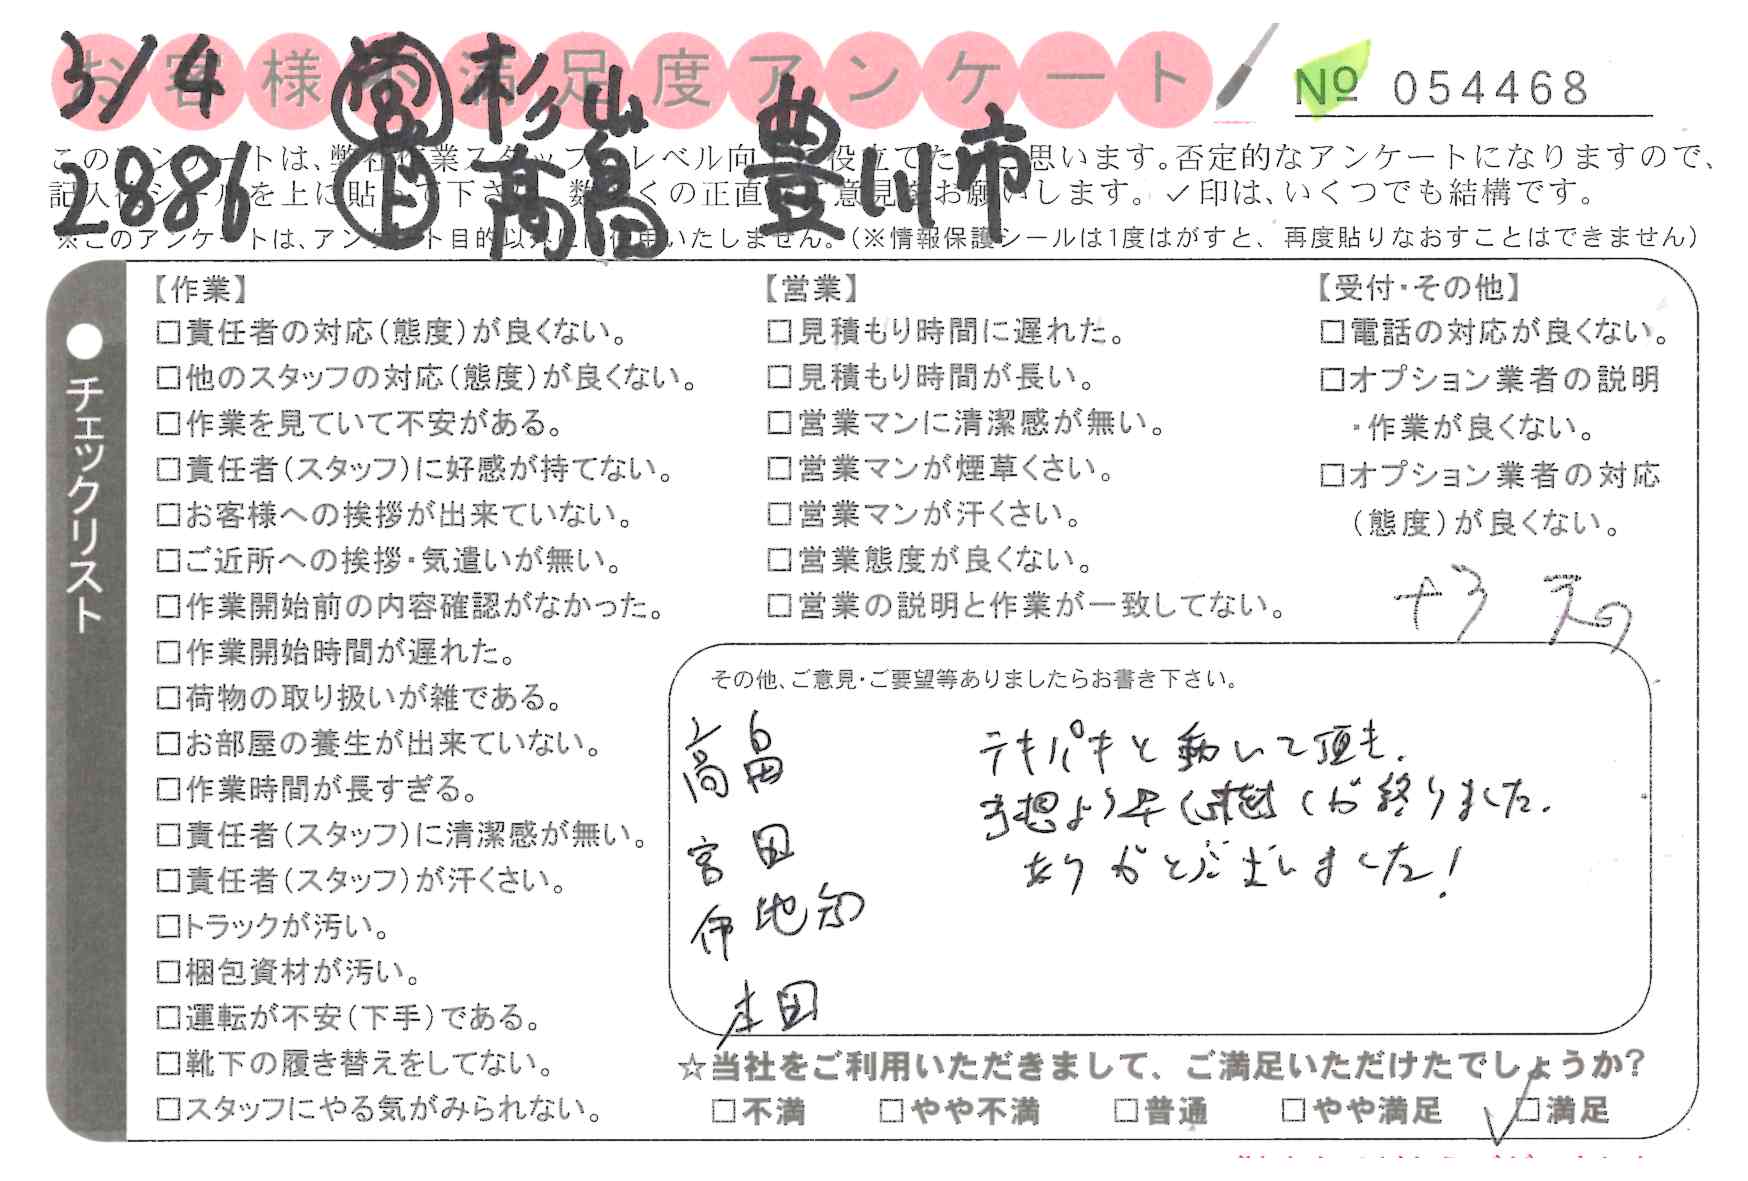 お客様不満足度アンケート
№ 054468
3/4 営 杉山 豊川市
2886 下 高畠
このアンケートは、弊社作業スタッフのレベル向上に役立てたいと思います。否定的なアンケートになりますので、
記入後シールを上に貼って下さい。数多くの正直なご意見をお願いします。✓印は、いくつでも結構です。
※このアンケートは、アンケート目的以外には使用いたしません。(※情報保護シールは1度はがすと、再度貼りなおすことはできません)
●チェックリスト
【作業】
□責任者の対応(態度)が良くない。
□他のスタッフの対応(態度)が良くない。
□作業を見ていて不安がある。
□責任者(スタッフ)に好感が持てない。
□お客様への挨拶が出来ていない。
□ご近所への挨拶・気遣いが無い。
□作業開始前の内容確認がなかった。
□作業開始時間が遅れた。
□荷物の取り扱いが雑である。
□お部屋の養生が出来ていない。
□作業時間が長すぎる。
□責任者(スタッフ)に清潔感が無い。
□責任者(スタッフ)が汗くさい。
□トラックが汚い。
□梱包資材が汚い。
□運転が不安(下手)である。
□靴下の履き替えをしてない。
□スタッフにやる気がみられない。
【営業】
□見積もり時間に遅れた。
□見積もり時間が長い。
□営業マンに清潔感が無い。
□営業マンが煙草くさい。
□営業マンが汗くさい。
□営業態度が良くない。
□営業の説明と作業が一致してない。
【受付・その他】
□電話の対応が良くない。
□オプション業者の説明
・作業が良くない。
□オプション業者の対応
(態度)が良くない。
その他、ご意見・ご要望等ありましたらお書き下さい。
高畠
宮田
伊地知
本田
テキパキと動いて頂き、
予想より早く終りました。
ありがとうございました!
☆当社をご利用いただきまして、ご満足いただけたでしょうか?
□不満 □やや不満 □普通 □やや満足 ✓□満足